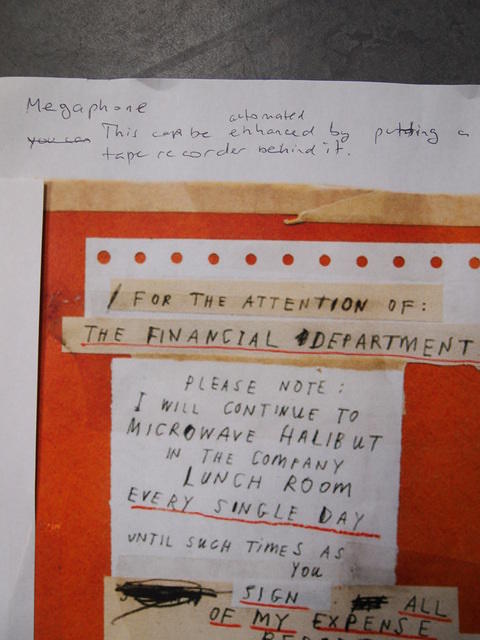 Megaphone
automated
you can This can be enhanced by putting a
tape recorder behind it.
FOR THE ATTENTION OF:
THE FINANCIAL DEPARTMENT
PLEASE NOTE:
I WILL CONTINUE TO
MICROWAVE HALIBUT
IN THE COMPANY
LUNCH ROOM
EVERY SINGLE DAY
UNTIL SUCH TIMES AS
YOU
SIGN ALL
OF MY EXPENSE